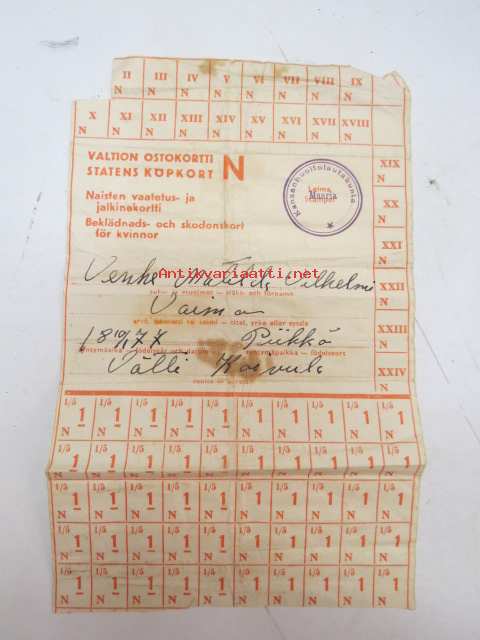 II III IV V VI VII VIII IX
N N N N N N N
X XI XII XIII XIV XV XVI XVII XVIII
N N N N N N N N N
VALTION OSTOKORTTI N
STATENS KÖPKORT
Naisten vaatetus- ja
jalkinekortti
Beklädnads- och skodonskort
för kvinnor
Kansanhuoltolautakunta
Leima
Maaria
Stämpel
XIX
N
XX
N
XXI
N
XXII
N
XXIII
N
XXIV
N
Antikvariaatti.net
Venho Matilda Vilhelmi
suku- ja etunimet — släkt- och förnamn
Vaimo
arvo, ammatti tai toimi — titel, yrke eller syssla
18 10/1 77 Piikkö
syntymäpaikka — födelseort
Välli Koivula
1/5 1/5 1/5 1/5 1/5 1/5 1/5 1/5 1/5
1 1 1 1 1 1 1 1 1
N N N N N N N N N
1/5 1/5 1/5 1/5 1/5 1/5 1/5 1/5 1/5
1 1 1 1 1 1 1 1 1
N N N N N N N N N
1/5 1/5 1/5 1/5 1/5 1/5 1/5 1/5 1/5
1 1 1 1 1 1 1 1 1
N N N N N N N N N
1/5 1/5 1/5 1/5 1/5 1/5 1/5 1/5 1/5
1 1 1 1 1 1 1 1 1
N N N N N N N N N
1/5 1/5 1/5 1/5 1/5 1/5 1/5 1/5 1/5
1 1 1 1 1 1 1 1 1
N N N N N N N N N